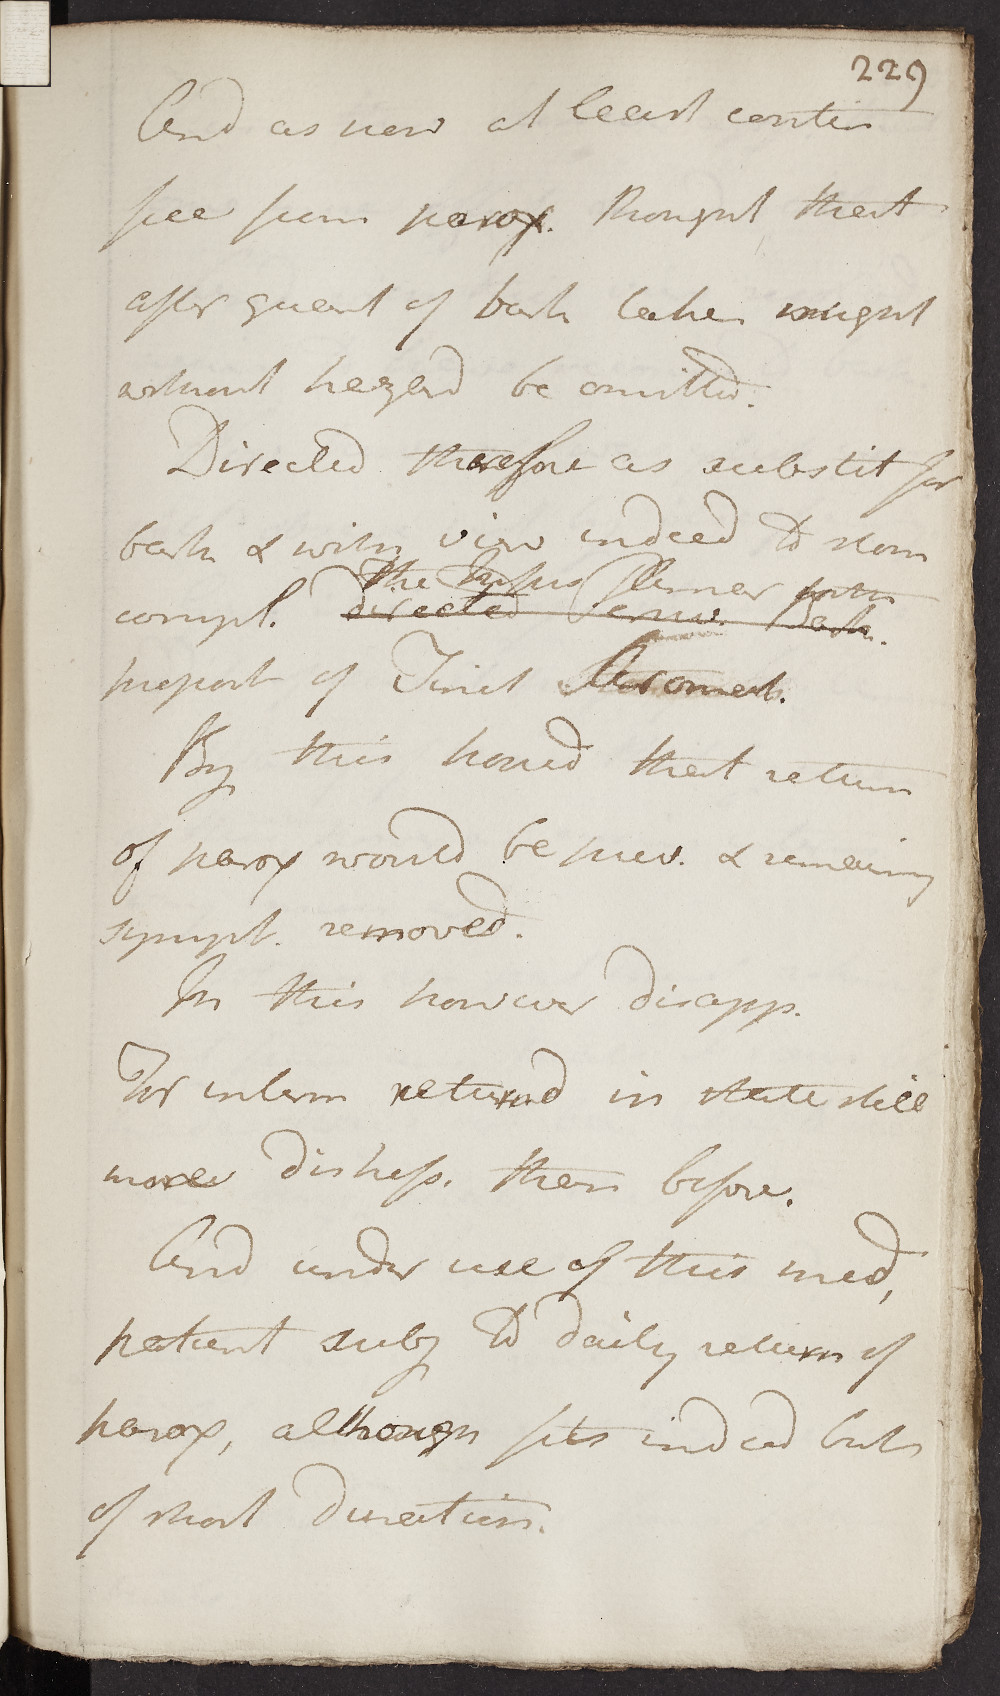 229
And as now at least contin
free from parox. Thought that
after quant of bark taken might
without hazard be omitted.
Directed therefore as substit for
bark & with view indeed to stom
The Infus Sennae with
compl. directed bark.
proport of Tinct Aromat.
By this hoped that return
of parox would be prev. & remaining
sympt. removed.
In this however disapp.
For interm returnd in state still
more distress. than before.
And under use of this med,
patient subj to daily return of
parox, although fits indeed but
of short duration.